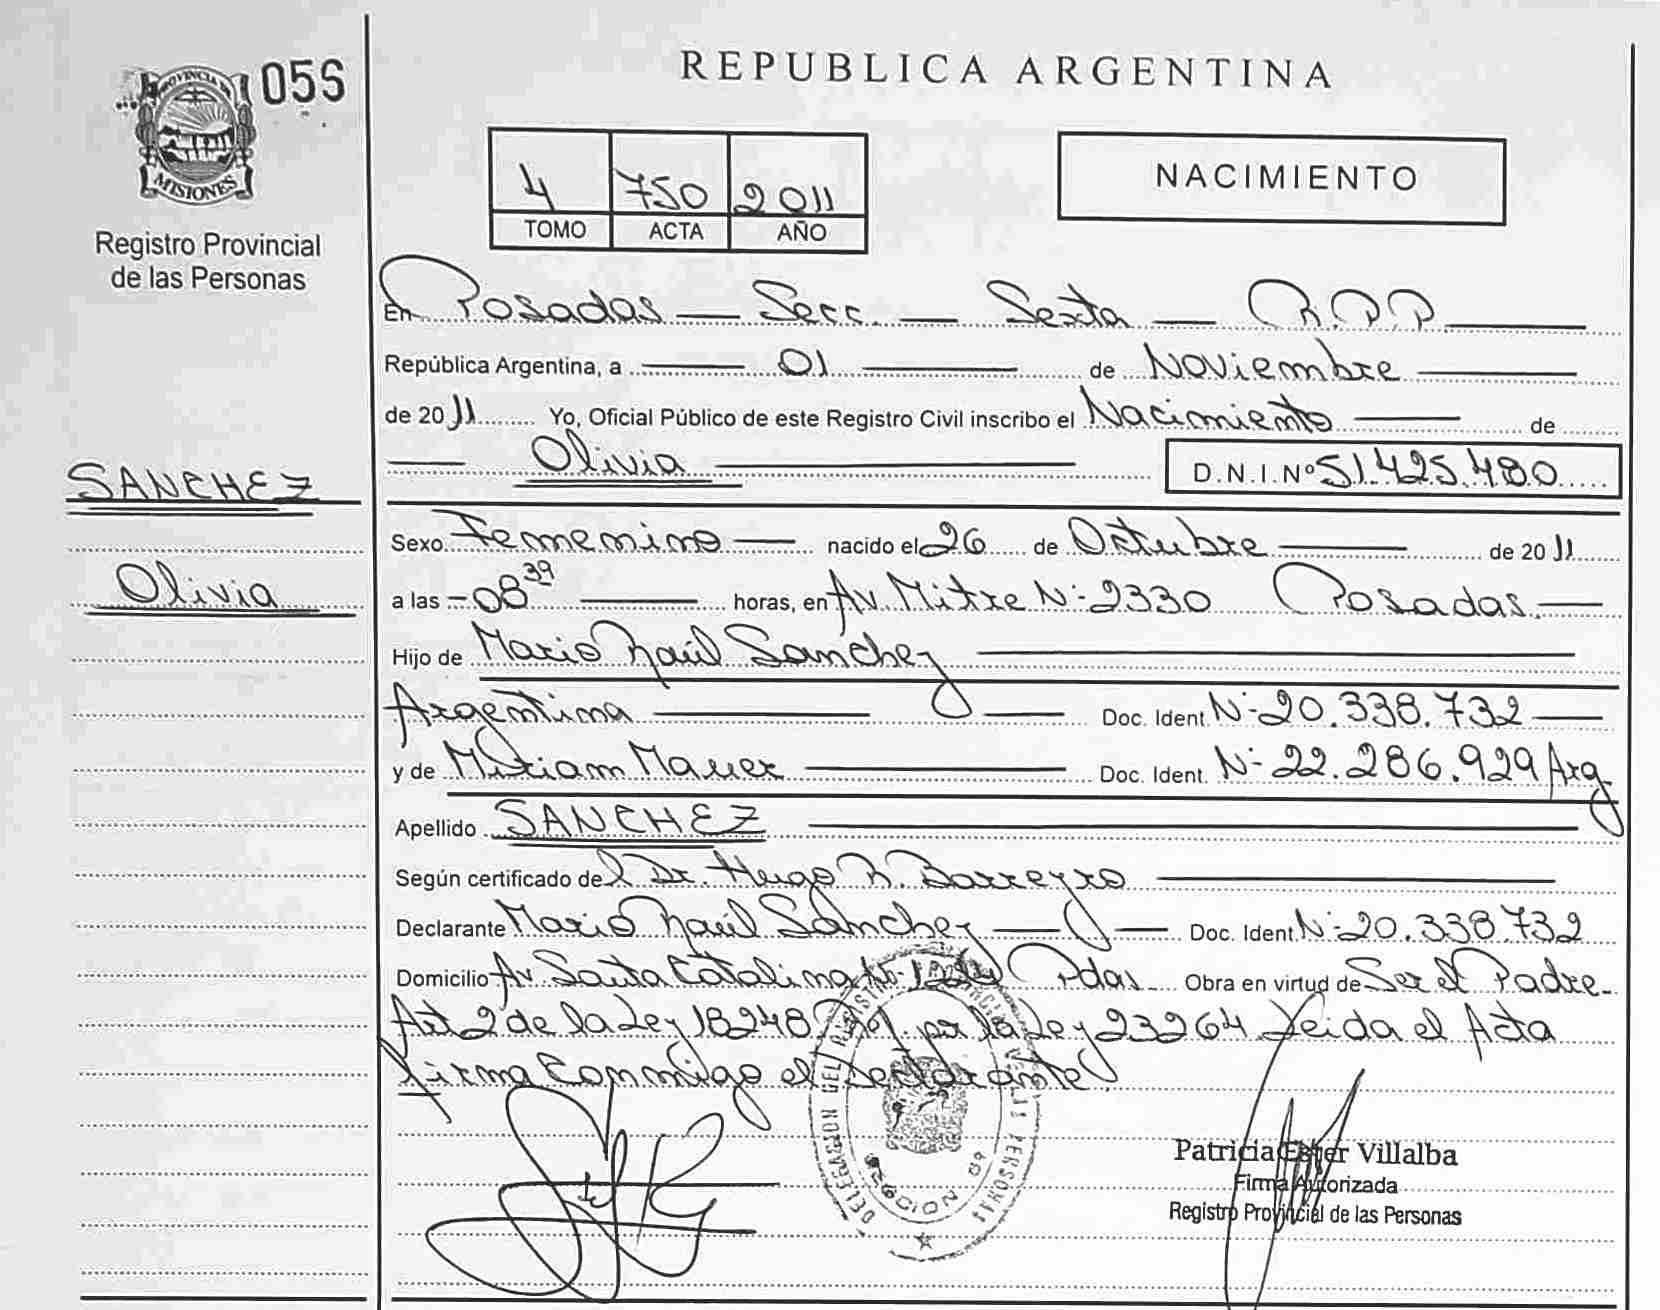 PROVINCIA DE
MISIONES
056
Registro Provincial
de las Personas
SANCHEZ
Olivia
REPUBLICA ARGENTINA
4 750 2011
TOMO ACTA AÑO
NACIMIENTO
En Posadas — Secc. — Sexta — R.P.P. —
República Argentina, a — 01 — de Noviembre —
de 2011 Yo, Oficial Público de este Registro Civil inscribo el Nacimiento — de
— Olivia — D.N.I. Nº 51.425.480
Sexo Femenino — nacido el 26 de Octubre — de 2011
a las – 08 39 — horas, en Av. Mitre Nº 2330 Posadas. —
Hijo de Mario Raúl Sanchez —
Argentina — Doc. Ident. Nº 20.338.732 —
y de Miriam Mauer — Doc. Ident. Nº 22.286.929 Arg
Apellido SANCHEZ —
Según certificado del Dr. Hugo R. Barreyro —
Declarante Mario Raúl Sanchez — Doc. Ident. Nº 20.338.732
Domicilio Av. Santa Catalina Nº Pdas. Obra en virtud de Ser el Padre –
Art 2º de la Ley 18248 por la Ley 23264. Leida el Acta
firma Conmigo el Declarante.
DELEGACION DEL REGISTRO PROVINCIAL DE LAS PERSONAS
SECCION 6ª
Patricia Ester Villalba
Firma Autorizada
Registro Provincial de las Personas